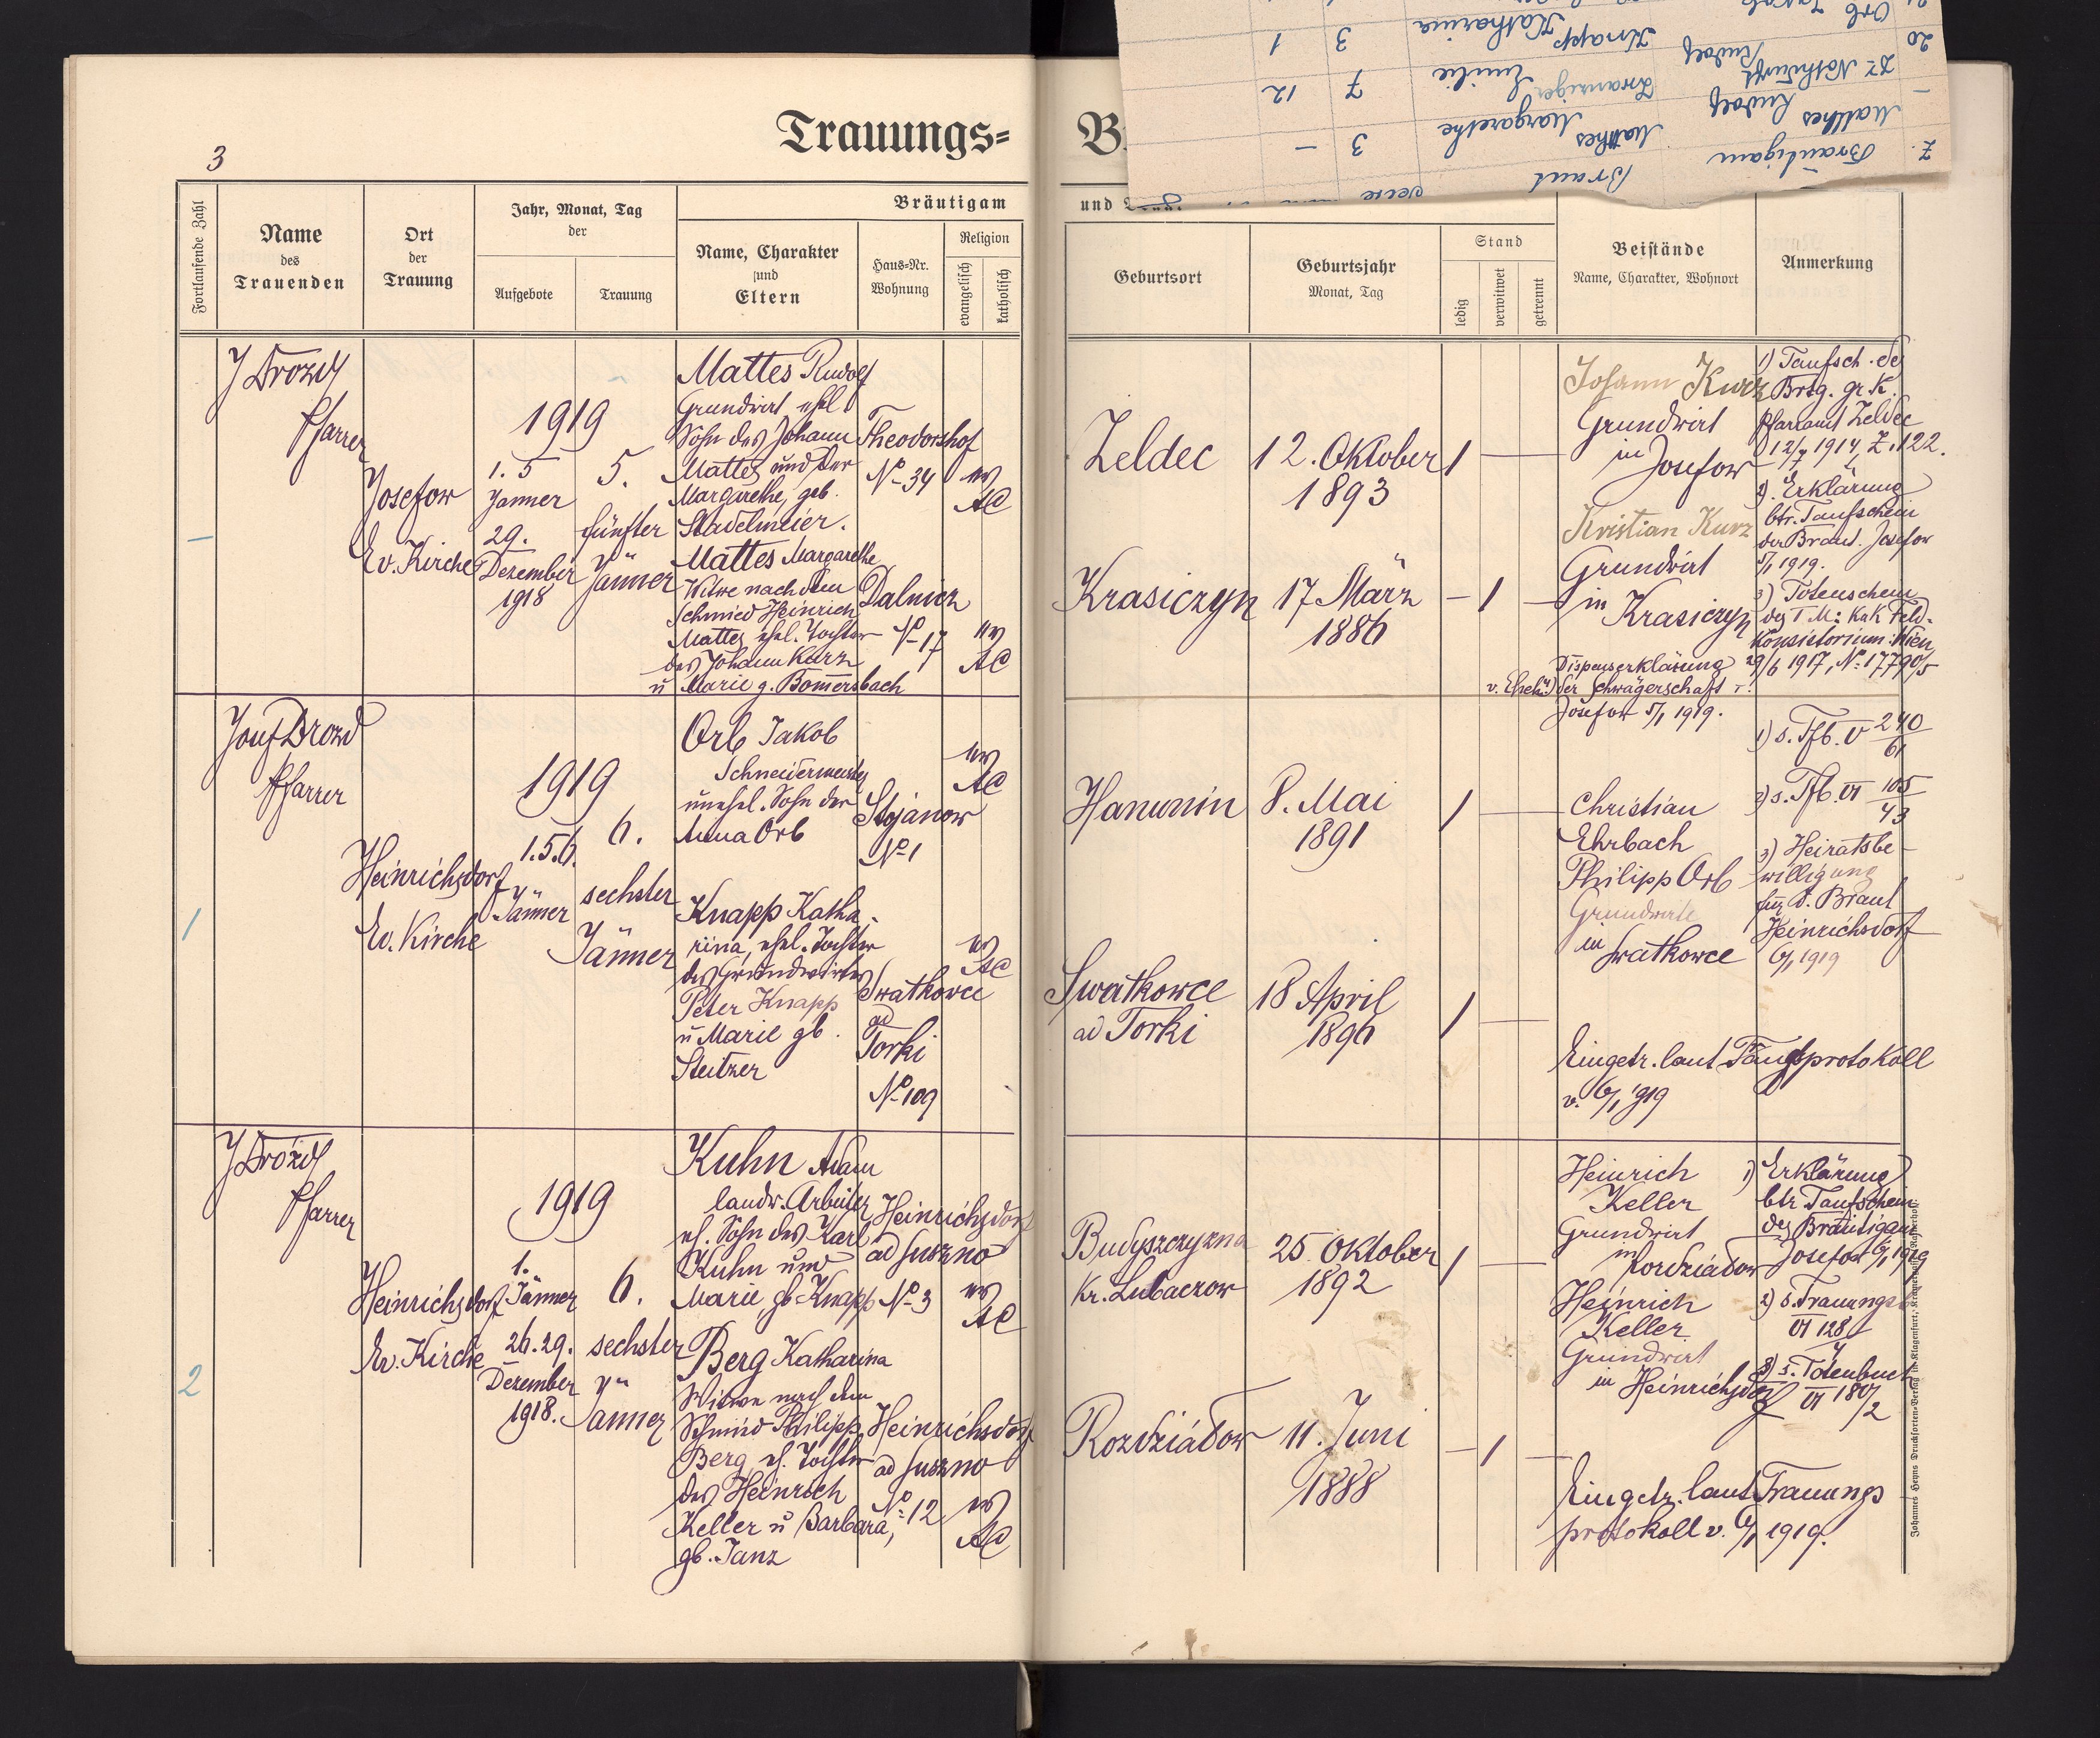 3
Trauungs=
Fortlaufende Zahl
Name
des
Trauenden
Ort
der
Trauung
Jahr, Monat, Tag
der
Aufgebote
Trauung
Bräutigam
Name, Charakter
und
Eltern
Haus=Nr.
Wohnung
Religion
evangelisch
katholisch
und
Geburtsort
Geburtsjahr
Monat, Tag
Stand
ledig
verwitwet
getrennt
Beistände
Name, Charakter, Wohnort
Anmerkung
Z.
Bräutigam
Braut
Matthes Rudolf
Matthes
Margarethe
3
—
Rudolf
Emilie
7
12
20
Knapp
Katharina
3
1
Orb Jakob
J Drozd
Pfarrer
Josefow
Ev. Kirche
1919
1. 5
Jänner
29.
Dezember
1918
5.
fünfter
Jänner
Mattes Rudolf
Grundwirt, ehel
Sohn des Johann
Mattes und der
Margarethe, geb.
Stadelmeier.
Theodorshof
No 34
AC
Mattes Margarethe
Witwe nach dem
Schmied Heinrich
Mattes ehel. Tochter
des Johann Kurz
u Marie g. Bomersbach
Dalnicz
No 17
AC
Zeldec
12. Oktober
1893
1
Krasiczyn
17 März
1886
— 1 —
Johann Kurz
Grundwirt
in Josefow
Kristian Kurz
Grundwirt
in
Krasiczyn
Dispenserklärung
der Schwägerschaft
Josefow 5/1 1919.
1) Taufsch. des
Brtg. gr. K.
Pfarramt Zeldec
1914, Z. 122.
2). Erklärung
btr. Taufschein
der Braut. Josefow
5/1 1919.
3) Totenschein
des T. M: KuK Feld-
Konsistorium: Wien,
29/6 1917, No: 17790/5
1
Josef Drozd
Pfarrer
Heinrichsdorf
Ev. Kirche
1919
1. 5. 6.
Jänner
6.
sechster
Jänner
Orb Jakob
Schneidermeister
unehel. Sohn der
Anna Orb
Stojanow
No 1
AC
Knapp Katha-
rina, ehel. Tochter
des Grundwirtes
Peter Knapp
u Marie gb.
Steitzer
Swatkowce
ad
Torki
No 109
AC
Hanunin
8. Mai
1891
1
Swatkowce
ad Torki
18 April
1896
1
Christian
Ehrbach
Philipp Orb
Grundwirte
in
Swatkowce
1) s. Tfb. V 240
61
2) s. Tfb. VI 105
43
3) Heiratsbe-
willigung
für d. Braut
Heinrichsdorf
6/1 1919
Eingetr. laut Trauungsprotokoll
v. 6/1 1919
2
J Drozd
Pfarrer
Heinrichsdorf
Ev. Kirche
1919
1.
Jänner
26. 29.
Dezember
1918.
6.
sechster
Jänner
Kuhn Adam
landw. Arbeiter
eh. Sohn des Karl
Kuhn und
Marie, gb Knapp
Heinrichsdorf
ad Suszno
No 3
AC
Berg Katharina
Witwe nach dem
Schmied Philipp
Berg, eh. Tochter
des Heinrich
Keller u Barbara,
gb. Janz
Heinrichsdorf
ad Suszno
No: 12
AC
Budyszczyzna
Kr. Lubaczow
25 Oktober
1892
1
Rozdziálow
11. Juni
1888
— 1
Heinrich
Keller
Grundwirt
in
Rozdziálow
Heinrich
Keller
Grundwirt
in Heinrichsdorf
1) Erklärung
btr. Taufschein
des Bräutigam
Josefow 6/1 1919
2) s. Trauungsb.
VI 128/4
3) s. Totenbuch
VI 180/2
Eingetr. laut Trauungs
protokoll v. 6/1 1919.
Johannes Heyns Druckforten=Verlag in Klagenfurt,